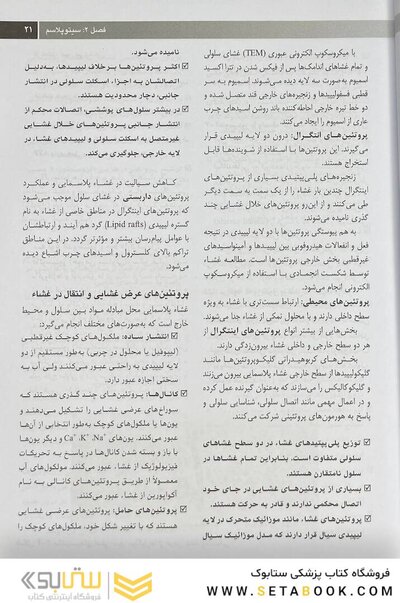 فصل ۲: سیتوپلاسم
۲۱
با میکروسکوپ الکترونی عبوری (TEM) غشای سلولی
و تمام غشاهای اندامک‌ها پس از فیکس شدن در تترا اکسید
اسمیوم به‌صورت سه لایه دیده می‌شوند. اسمیوم به سر
قطبی فسفولیپیدها و زنجیره‌های خارجی قند متصل شده و
دو خط تیره خارجی احاطه‌کننده باند روشن اسیدهای چرب
عاری از اسمیوم را ایجاد می‌کنند.
پروتئین‌های انتگرال: درون دو لایه لیپیدی قرار
می‌گیرند. این پروتئین‌ها با استفاده از شوینده‌ها قابل
استخراج هستند.
زنجیره‌های پلی‌پپتیدی بسیاری از پروتئین‌های
اینتگرال چندین بار غشاء را از یک سمت به سمت دیگر
طی می‌کنند و از این‌رو پروتئین‌های خلال غشایی چند
گذری نامیده می‌شوند.
به هم پیوستگی پروتئین‌ها با دو لایه لیپیدی در نتیجه
فعل و انفعالات هیدروفوبی بین لیپیدها و آمینواسیدهای
غیرقطبی بخش خارجی پروتئین‌ها است. مطالعه غشاء
توسط شکست انجمادی با استفاده از میکروسکوپ
الکترونی انجام می‌شود.
پروتئین‌های محیطی: ارتباط سست‌تری با غشاء به ویژه
سطح داخلی دارند و با محلول نمکی از غشاء جدا می‌شوند.
بخش‌هایی از بیشتر انواع پروتئین‌های اینتگرال از
هر دو سطح خارجی و داخلی غشاء بیرون‌زدگی دارند.
بخش‌های کربوهیدراتی گلیکوپروتئین‌ها مانند
گلیکولیپیدها از سطح خارجی غشاء پلاسمایی بیرون می‌زنند
و گلیکوکالیکس را می‌سازند که به‌عنوان گیرنده عمل کرده
و در اعمال مهمی مانند اتصال سلولی، شناسایی سلولی و
پاسخ به هورمون‌های پروتئینی شرکت می‌کنند.
☑ توزیع پلی‌پپتیدهای غشاء، در دو سطح غشاهای
سلولی متفاوت است. بنابراین تمام غشاها در
سلول نامتقارن هستند.
☑ بسیاری از پروتئین‌های غشایی در جای خود
اتصال محکمی ندارند و قادر به حرکت هستند.
☑ پروتئین‌های غشاء، مانند موزائیک متحرک در لایه
لیپیدی سیال قرار دارند که مدل موزائیک سیال
نامیده می‌شود.
☑ اکثر پروتئین‌ها برخلاف لیپیدها، به‌دلیل
اتصالشان به اجزاء، اسکلت سلولی در انتشار
جانبی، دچار محدودیت هستند.
☑ در بیشتر سلول‌های پوششی، اتصالات محکم از
انتشار جانبی پروتئین‌های خلال غشایی
غیرمتصل به اسکلت سلولی و لیپیدهای غشا، در
لایه خارجی، جلوگیری می‌کند.
کاهش سیالیت در غشاء پلاسمایی و عملکرد
پروتئین‌های داربستی در غشای سلول موجب می‌شود
که پروتئین‌های اینتگرال در مناطق خاصی از غشاء به نام
گستره لیپیدی (Lipid rafts) گرد هم آیند و ارتباطشان
با عوامل پیام‌رسان بیشتر و مؤثرتر گردد. در این مناطق
تراکم بالای کلسترول و اسیدهای چرب اشباع دیده
می‌شود.
پروتئین‌های عرض غشایی و انتقال در غشاء
غشاء پلاسمایی محل مبادله مواد بین سلول و محیط
خارج است که به صورت‌های مختلف انجام می‌گیرد:
☑ انتشار ساده: ملکول‌های کوچک غیرقطبی
(لیپوفیل یا محلول در چربی) به‌طور مستقیم از دو
لایه لیپیدی به راحتی عبور می‌کنند ولی آب به
سختی اجازه عبور دارد.
☑ کانال‌ها: پروتئین‌های چند گذری هستند که
سوراخ‌های عرض غشایی را تشکیل می‌دهند و
یون‌ها یا ملکول‌های کوچک به‌طور انتخابی از آن‌ها
عبور می‌کنند. یون‌های Na⁺، K⁺، Ca⁺ و دیگر یون‌ها
با باز و بسته شدن کانال‌ها در پاسخ به تحریکات
فیزیولوژیک از غشا، عبور می‌کنند. مولکول‌های آب
معمولاً از طریق پروتئین‌های کانالی به نام
آکواپورین از غشاء، عبور می‌کنند.
☑ پروتئین‌های حامل: پروتئین‌های عرضی غشایی
هستند که با تغییر شکل خود، ملکول‌های کوچک را
فروشگاه کتاب پزشکی ستابوک
WWW.SETABOOK.COM
ستابوک
فروشگاه اینترنتی کتاب